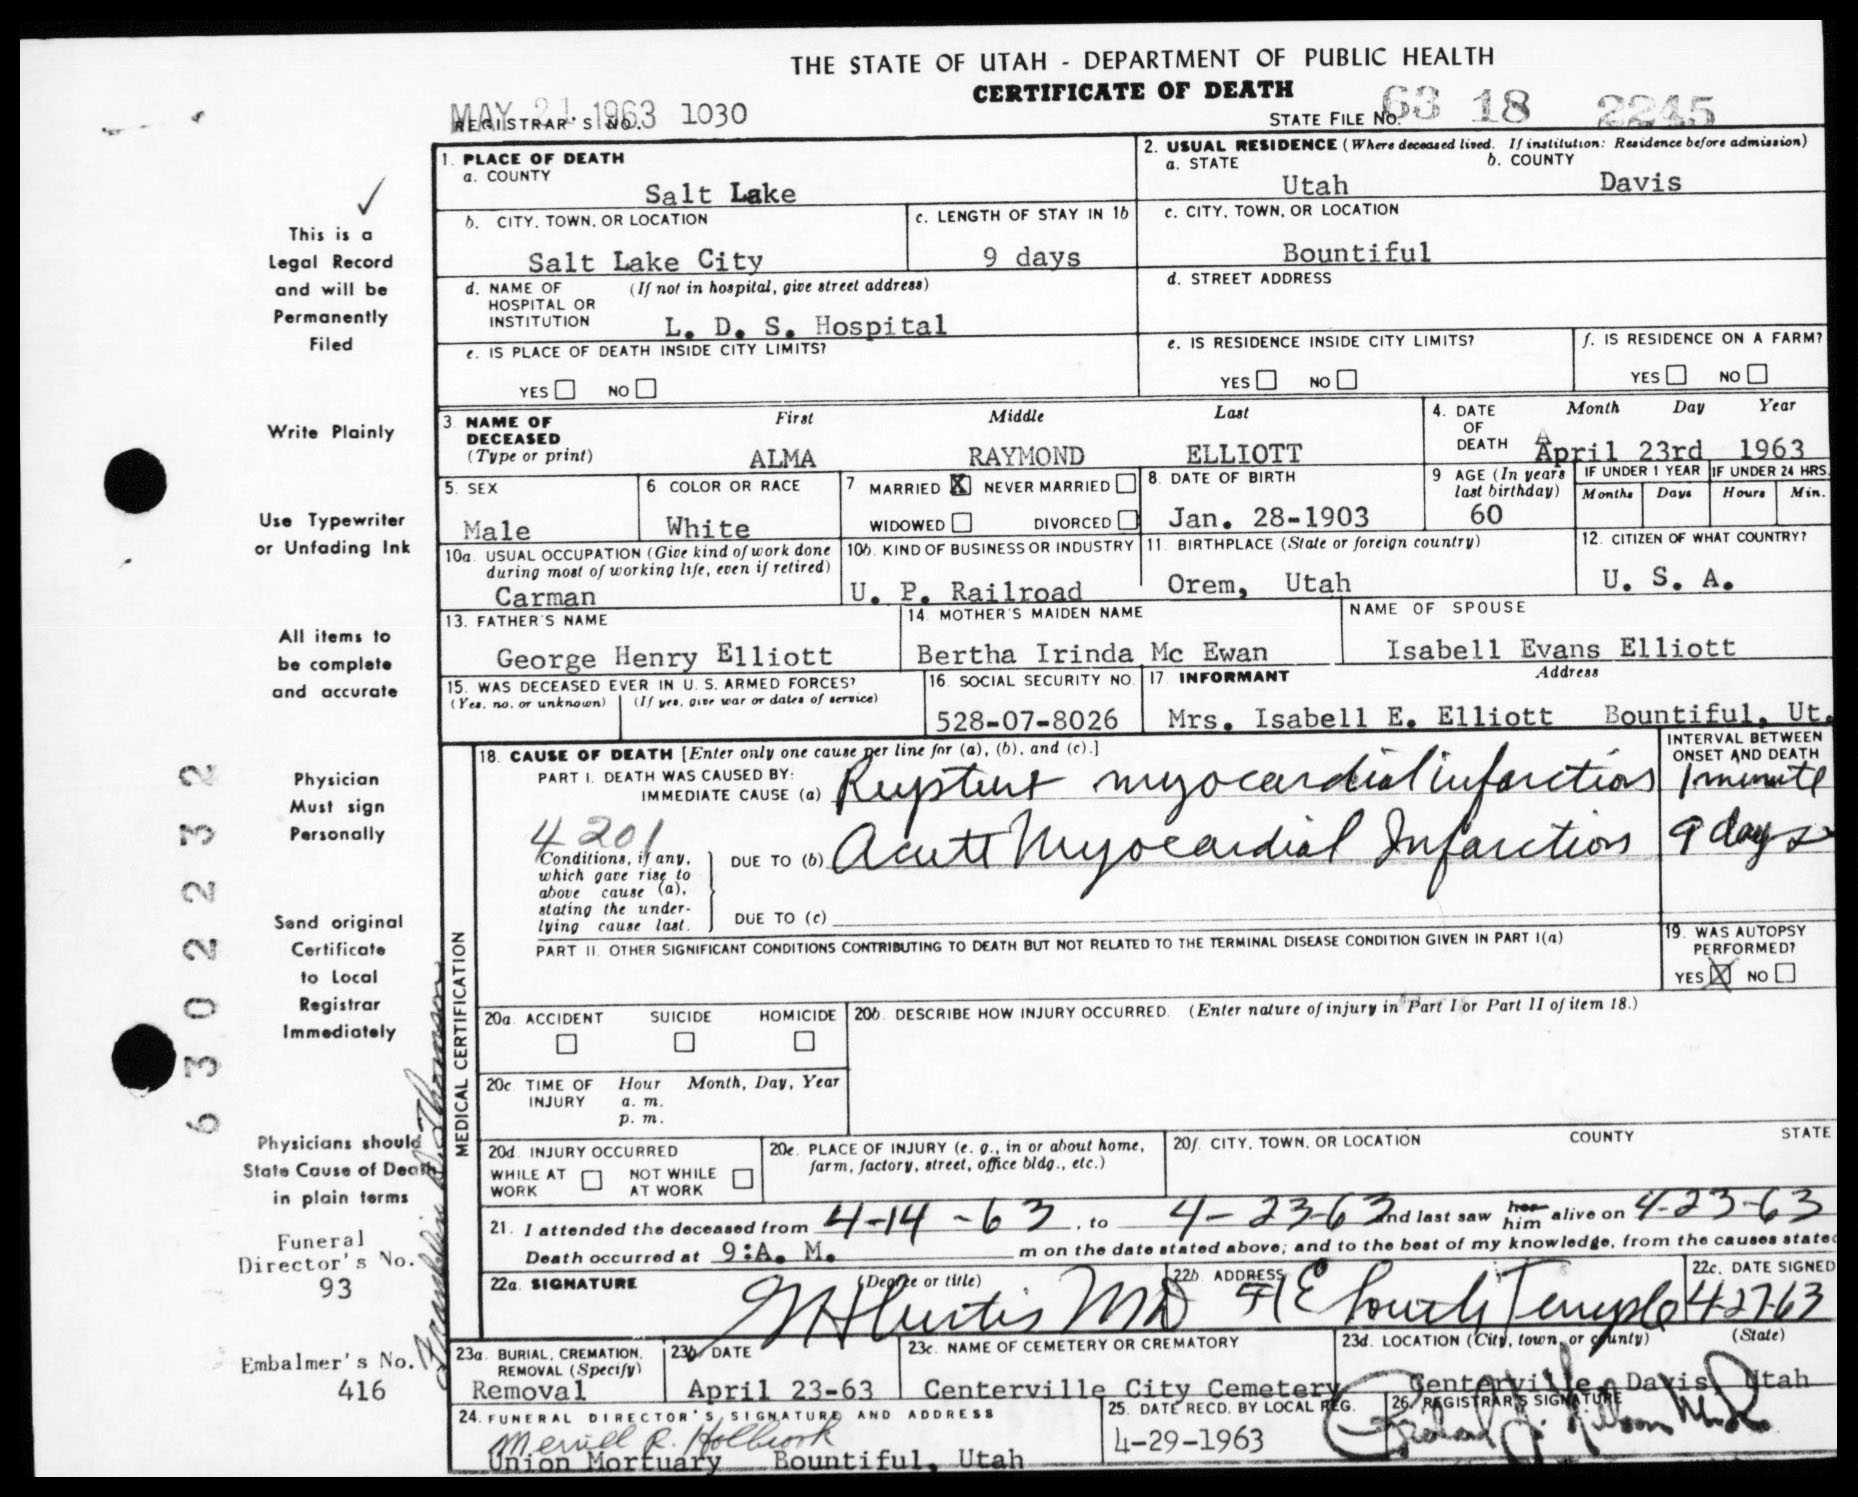 THE STATE OF UTAH - DEPARTMENT OF PUBLIC HEALTH
CERTIFICATE OF DEATH
MAY 21 1963 1030
REGISTRAR'S NO.
STATE FILE NO. 63 18 2245
1. PLACE OF DEATH
a. COUNTY
Salt Lake
2. USUAL RESIDENCE (Where deceased lived. If institution: Residence before admission)
a. STATE b. COUNTY
Utah Davis
b. CITY, TOWN, OR LOCATION
Salt Lake City
c. LENGTH OF STAY IN 1b
9 days
c. CITY, TOWN, OR LOCATION
Bountiful
d. NAME OF HOSPITAL OR INSTITUTION (If not in hospital, give street address)
L. D. S. Hospital
d. STREET ADDRESS
e. IS PLACE OF DEATH INSIDE CITY LIMITS?
YES NO
e. IS RESIDENCE INSIDE CITY LIMITS?
YES NO
f. IS RESIDENCE ON A FARM?
YES NO
3. NAME OF DECEASED (Type or print)
First Middle Last
ALMA RAYMOND ELLIOTT
4. DATE OF DEATH
Month Day Year
April 23rd 1963
5. SEX
Male
6. COLOR OR RACE
White
7 MARRIED X NEVER MARRIED
WIDOWED DIVORCED
8. DATE OF BIRTH
Jan. 28-1903
9 AGE (In years last birthday)
60
IF UNDER 1 YEAR IF UNDER 24 HRS.
Months Days Hours Min.
10a. USUAL OCCUPATION (Give kind of work done during most of working life, even if retired)
Carman
10b. KIND OF BUSINESS OR INDUSTRY
U. P. Railroad
11. BIRTHPLACE (State or foreign country)
Orem, Utah
12. CITIZEN OF WHAT COUNTRY?
U. S. A.
13. FATHER'S NAME
George Henry Elliott
14. MOTHER'S MAIDEN NAME
Bertha Irinda Mc Ewan
NAME OF SPOUSE
Isabell Evans Elliott
15. WAS DECEASED EVER IN U. S. ARMED FORCES?
(Yes, no, or unknown) (If yes, give war or dates of service)
16. SOCIAL SECURITY NO.
528-07-8026
17. INFORMANT Address
Mrs. Isabell E. Elliott Bountiful, Ut.
MEDICAL CERTIFICATION
18. CAUSE OF DEATH [Enter only one cause per line for (a), (b), and (c).]
INTERVAL BETWEEN ONSET AND DEATH
PART I. DEATH WAS CAUSED BY:
IMMEDIATE CAUSE (a) myocardial infarction 1 minute
4201
Conditions, if any, which gave rise to above cause (a), stating the underlying cause last.
DUE TO (b) Acute Myocardial Infarction 9 days
DUE TO (c)
PART II. OTHER SIGNIFICANT CONDITIONS CONTRIBUTING TO DEATH BUT NOT RELATED TO THE TERMINAL DISEASE CONDITION GIVEN IN PART I(a)
19. WAS AUTOPSY PERFORMED?
YES X NO
20a. ACCIDENT SUICIDE HOMICIDE
20b. DESCRIBE HOW INJURY OCCURRED. (Enter nature of injury in Part I or Part II of item 18.)
20c. TIME OF INJURY Hour Month, Day, Year
a. m.
p. m.
20d. INJURY OCCURRED
WHILE AT WORK NOT WHILE AT WORK
20e. PLACE OF INJURY (e. g., in or about home, farm, factory, street, office bldg., etc.)
20f. CITY, TOWN, OR LOCATION COUNTY STATE
21. I attended the deceased from 4-14-63, to 4-23-63 and last saw her him alive on 4-23-63
Death occurred at 9:A. M. m on the date stated above; and to the best of my knowledge, from the causes stated
22a. SIGNATURE (Degree or title)
Curtis MD
22b. ADDRESS
E South Temple
22c. DATE SIGNED
4-27-63
23a. BURIAL, CREMATION, REMOVAL (Specify)
Removal
23b. DATE
April 23-63
23c. NAME OF CEMETERY OR CREMATORY
Centerville City Cemetery
23d. LOCATION (City, town, or county) (State)
Centerville, Davis, Utah
24. FUNERAL DIRECTOR'S SIGNATURE AND ADDRESS
Merrill R. Holbrook
Union Mortuary Bountiful, Utah
25. DATE RECD. BY LOCAL REG.
4-29-1963
26. REGISTRAR'S SIGNATURE
This is a
Legal Record
and will be
Permanently
Filed
Write Plainly
Use Typewriter
or Unfading Ink
All items to
be complete
and accurate
Physician
Must sign
Personally
Send original
Certificate
to Local
Registrar
Immediately
Physicians should
State Cause of Death
in plain terms
Funeral
Director's No.
93
Embalmer's No.
416
Franklin D. Thomson
63022232